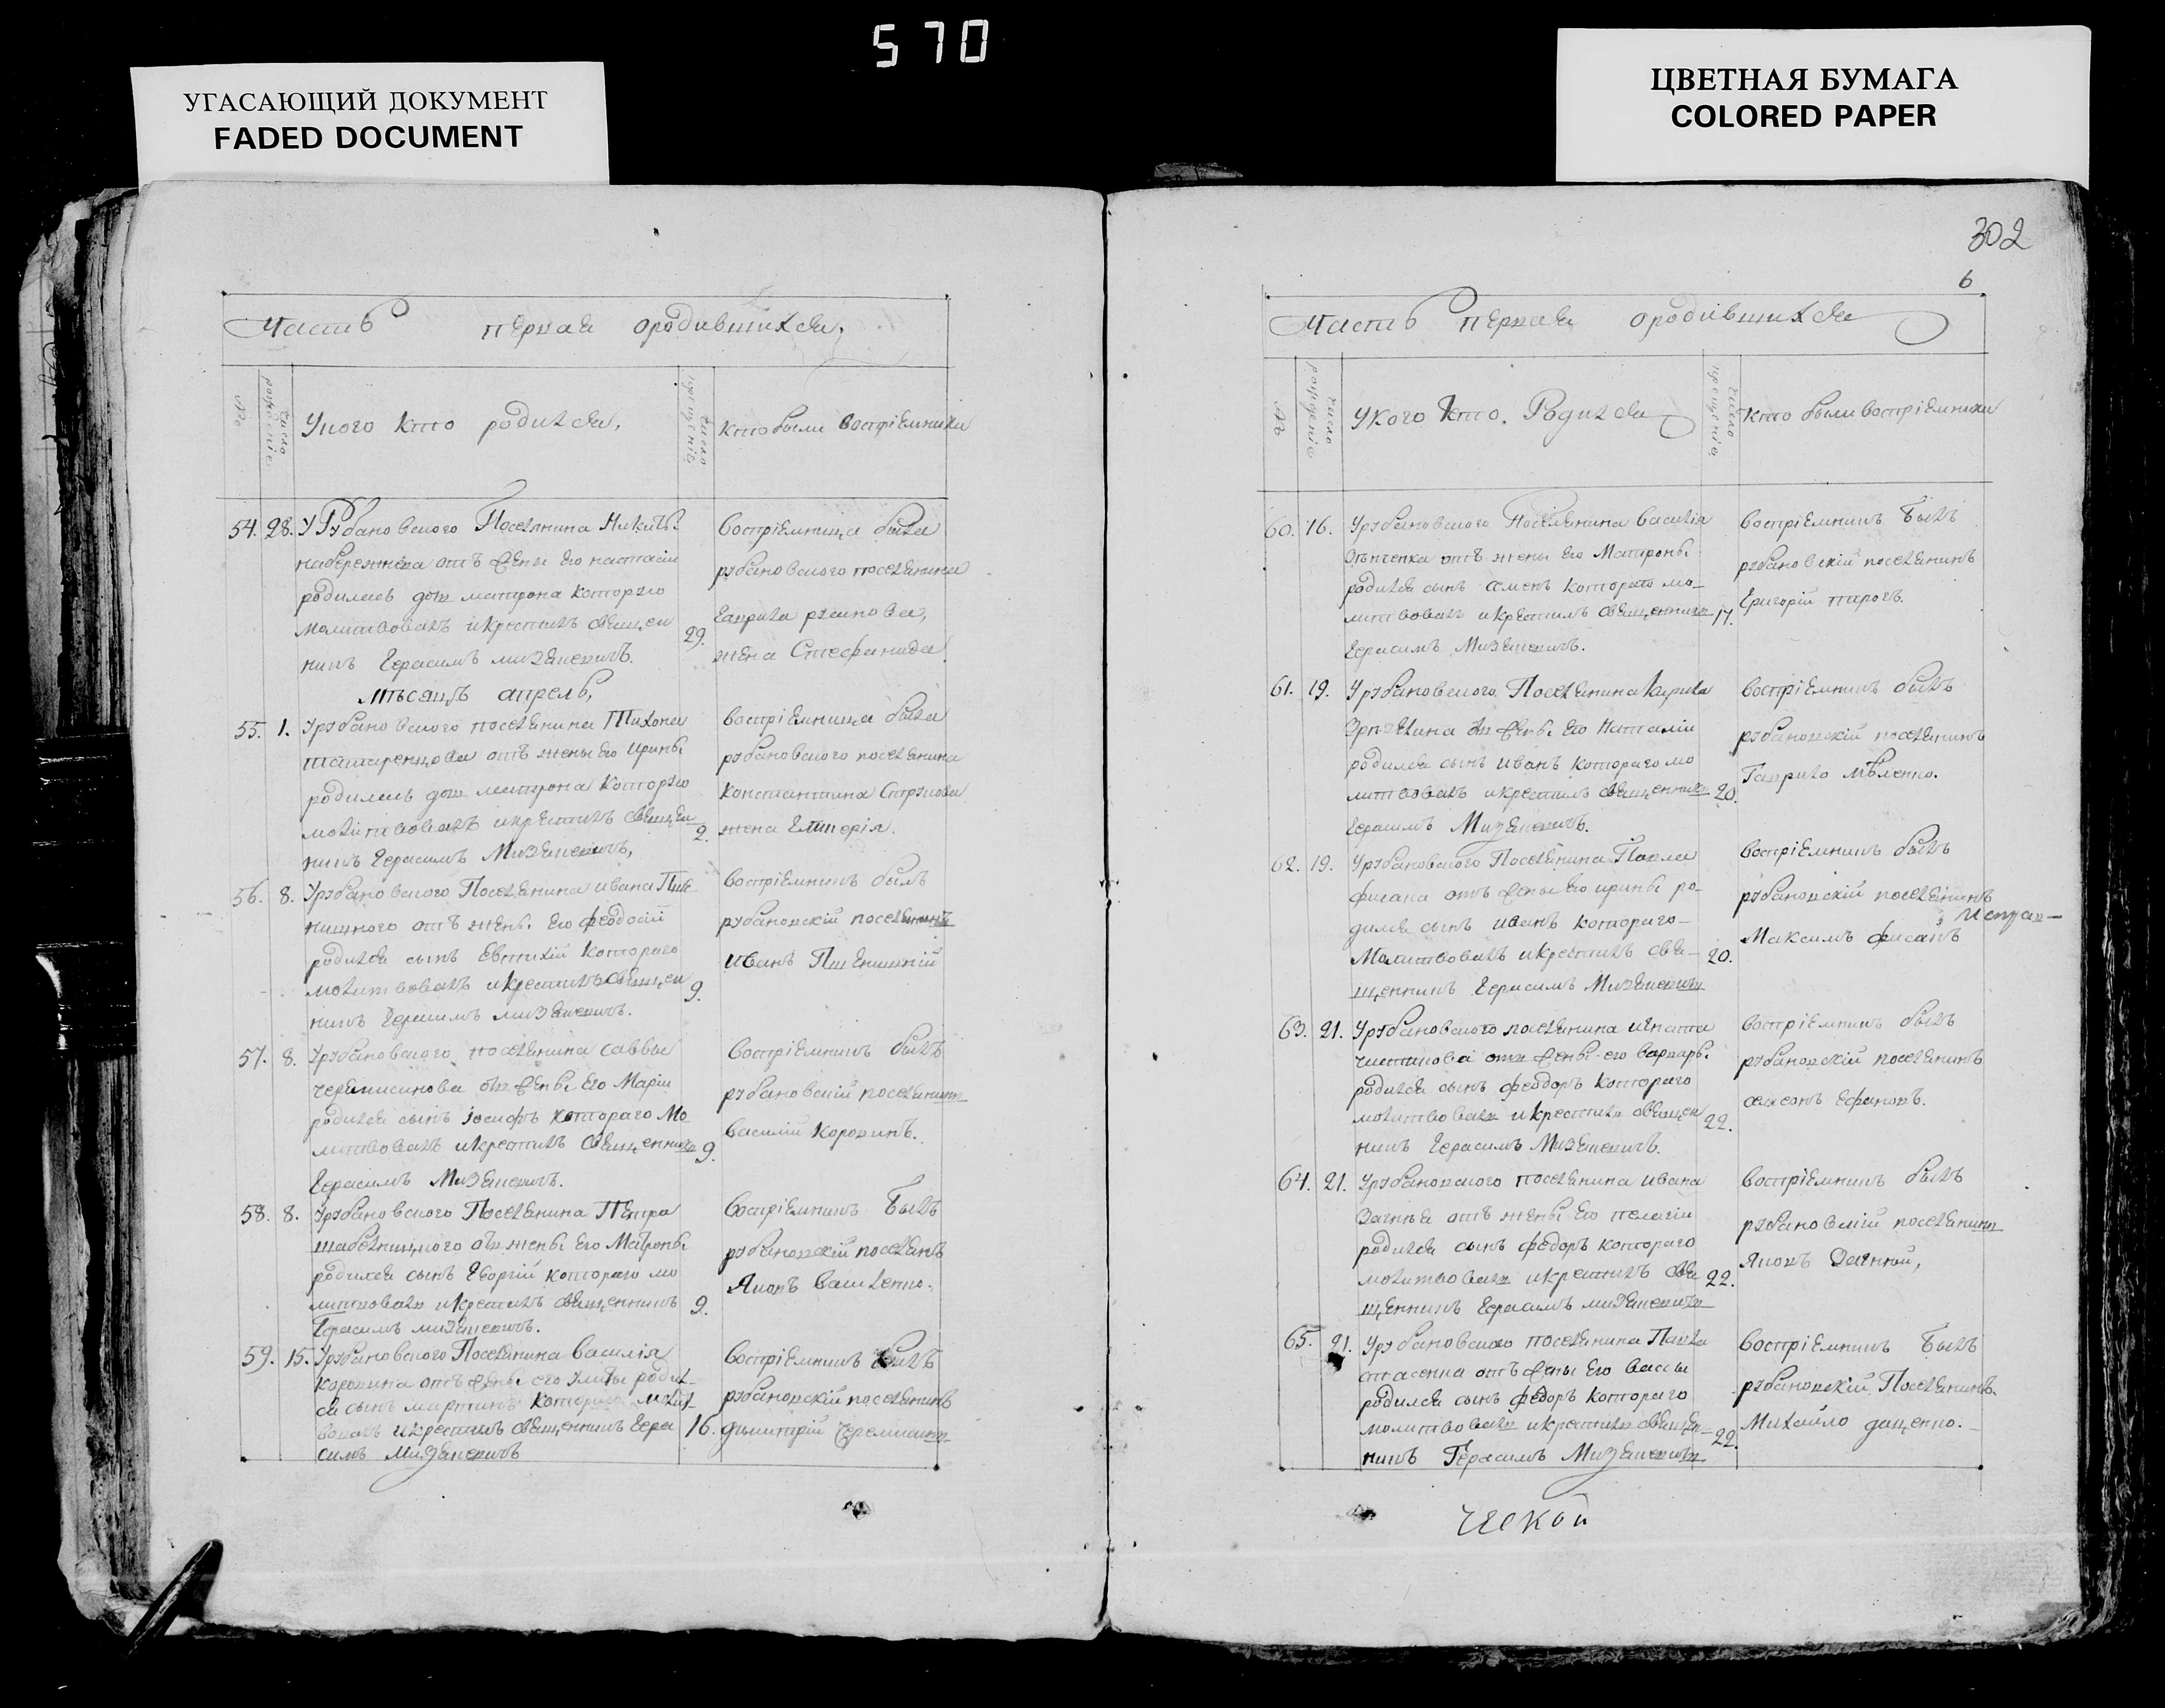 570
УГАСАЮЩИЙ ДОКУМЕНТ
FADED DOCUMENT
ЦВЕТНАЯ БУМАГА
COLORED PAPER
Часть первая ородившихся,
№
число рождения
Укого кто родился,
число крещенія
кто были воспріемники
54. 28. У Рубановского Поселянина Никиты
отъ жены его настасіи
родилась дощ матрона которую
молитвовалъ икрестилъ священ
никъ Герасимъ 29.
воспріемница была
рубановского поселянина
Гаврила
жена Стефанида
мѣсяцъ апрель,
55. 1. Урубановского поселянина Тихона
отъ жены его ирины
родилась дощ матрона которую
молитвовалъ икрестилъ священ 2.
никъ Герасимъ
воспріемница была
рубановского поселянина
константина
жена
56. 8. Урубановского Поселянина ивана Пше
ничного отъ жены его феодосіи
родился сынъ Евтихій котораго
молитвовалъ икрестилъ священ 9.
никъ Герасимъ
воспріемникъ былъ
рубановскій поселянинъ
иванъ Пшеничній
57. 8. Урубановского поселянина саввы
черемисинова отъ жены его Маріи
родился сынъ іосифъ котораго мо
литвовалъ икрестилъ священникъ 9.
Герасимъ
воспріемникъ былъ
рубановскій поселянинъ
василій коровинъ.
58. 8. Урубановского Поселянина Петра
отъ жены его Матроны
родился сынъ Георгій котораго мо
литвовалъ икрестилъ священникъ 9.
Герасимъ
воспріемникъ былъ
рубановскій поселянинъ
Яковъ
59. 15. Урубановского Поселянина василія
коровина отъ жены его родил
ся сынъ мартинъ котораго молит
вовалъ икрестилъ священникъ Гера 16.
симъ
воспріемникъ былъ
рубановскій поселянинъ
димитрій
302
6
Часть первая ородившихся
№
число рождения
Укого кто. Родился
число крещенія
кто были воспріемники
60. 16. Урубановского Поселянина василія
отъ жены его Матроны
родился сынъ семенъ котораго мо-
литвовалъ икрестилъ священникъ 17.
Герасимъ
воспріемникъ былъ
рубановскій поселянинъ
Григорій пирогъ.
61. 19. Урубановского Поселянина кирила
отъ жены его Наталіи
родился сынъ иванъ котораго мо
литвовалъ икрестилъ священникъ 20.
Герасимъ
воспріемникъ былъ
рубановскій поселянинъ
Гаврило
62. 19. Урубановского Поселянина Павла
фисана отъ жены его ирины ро-
дился сынъ иванъ котораго-
Молитвовалъ икрестилъ свя- 20.
щенникъ Герасимъ
воспріемникъ былъ
рубановскій поселянинъ
Максимъ фисанъ
Исправ-
63. 21. Урубановского поселянина игната
отъ жены его варвары
родился сынъ феодоръ котораго
молитвовалъ икрестилъ священ 22.
никъ Герасимъ
воспріемникъ былъ
рубановскій поселянинъ
64. 21. Урубановского поселянина ивана
отъ жены его пелагіи
родился сынъ федоръ котораго
молитвовалъ икрестилъ свя 22.
щенникъ Герасимъ
воспріемникъ былъ
рубановскій поселянинъ
Яковъ
65. 21. Урубановского поселянина Павла
стасенка отъ жены его вассы
родился сынъ федоръ котораго
молитвовалъ икрестилъ священ- 22.
никъ Герасимъ
воспріемникъ былъ
рубановскій Поселянинъ
Михайло даценко.
ческой